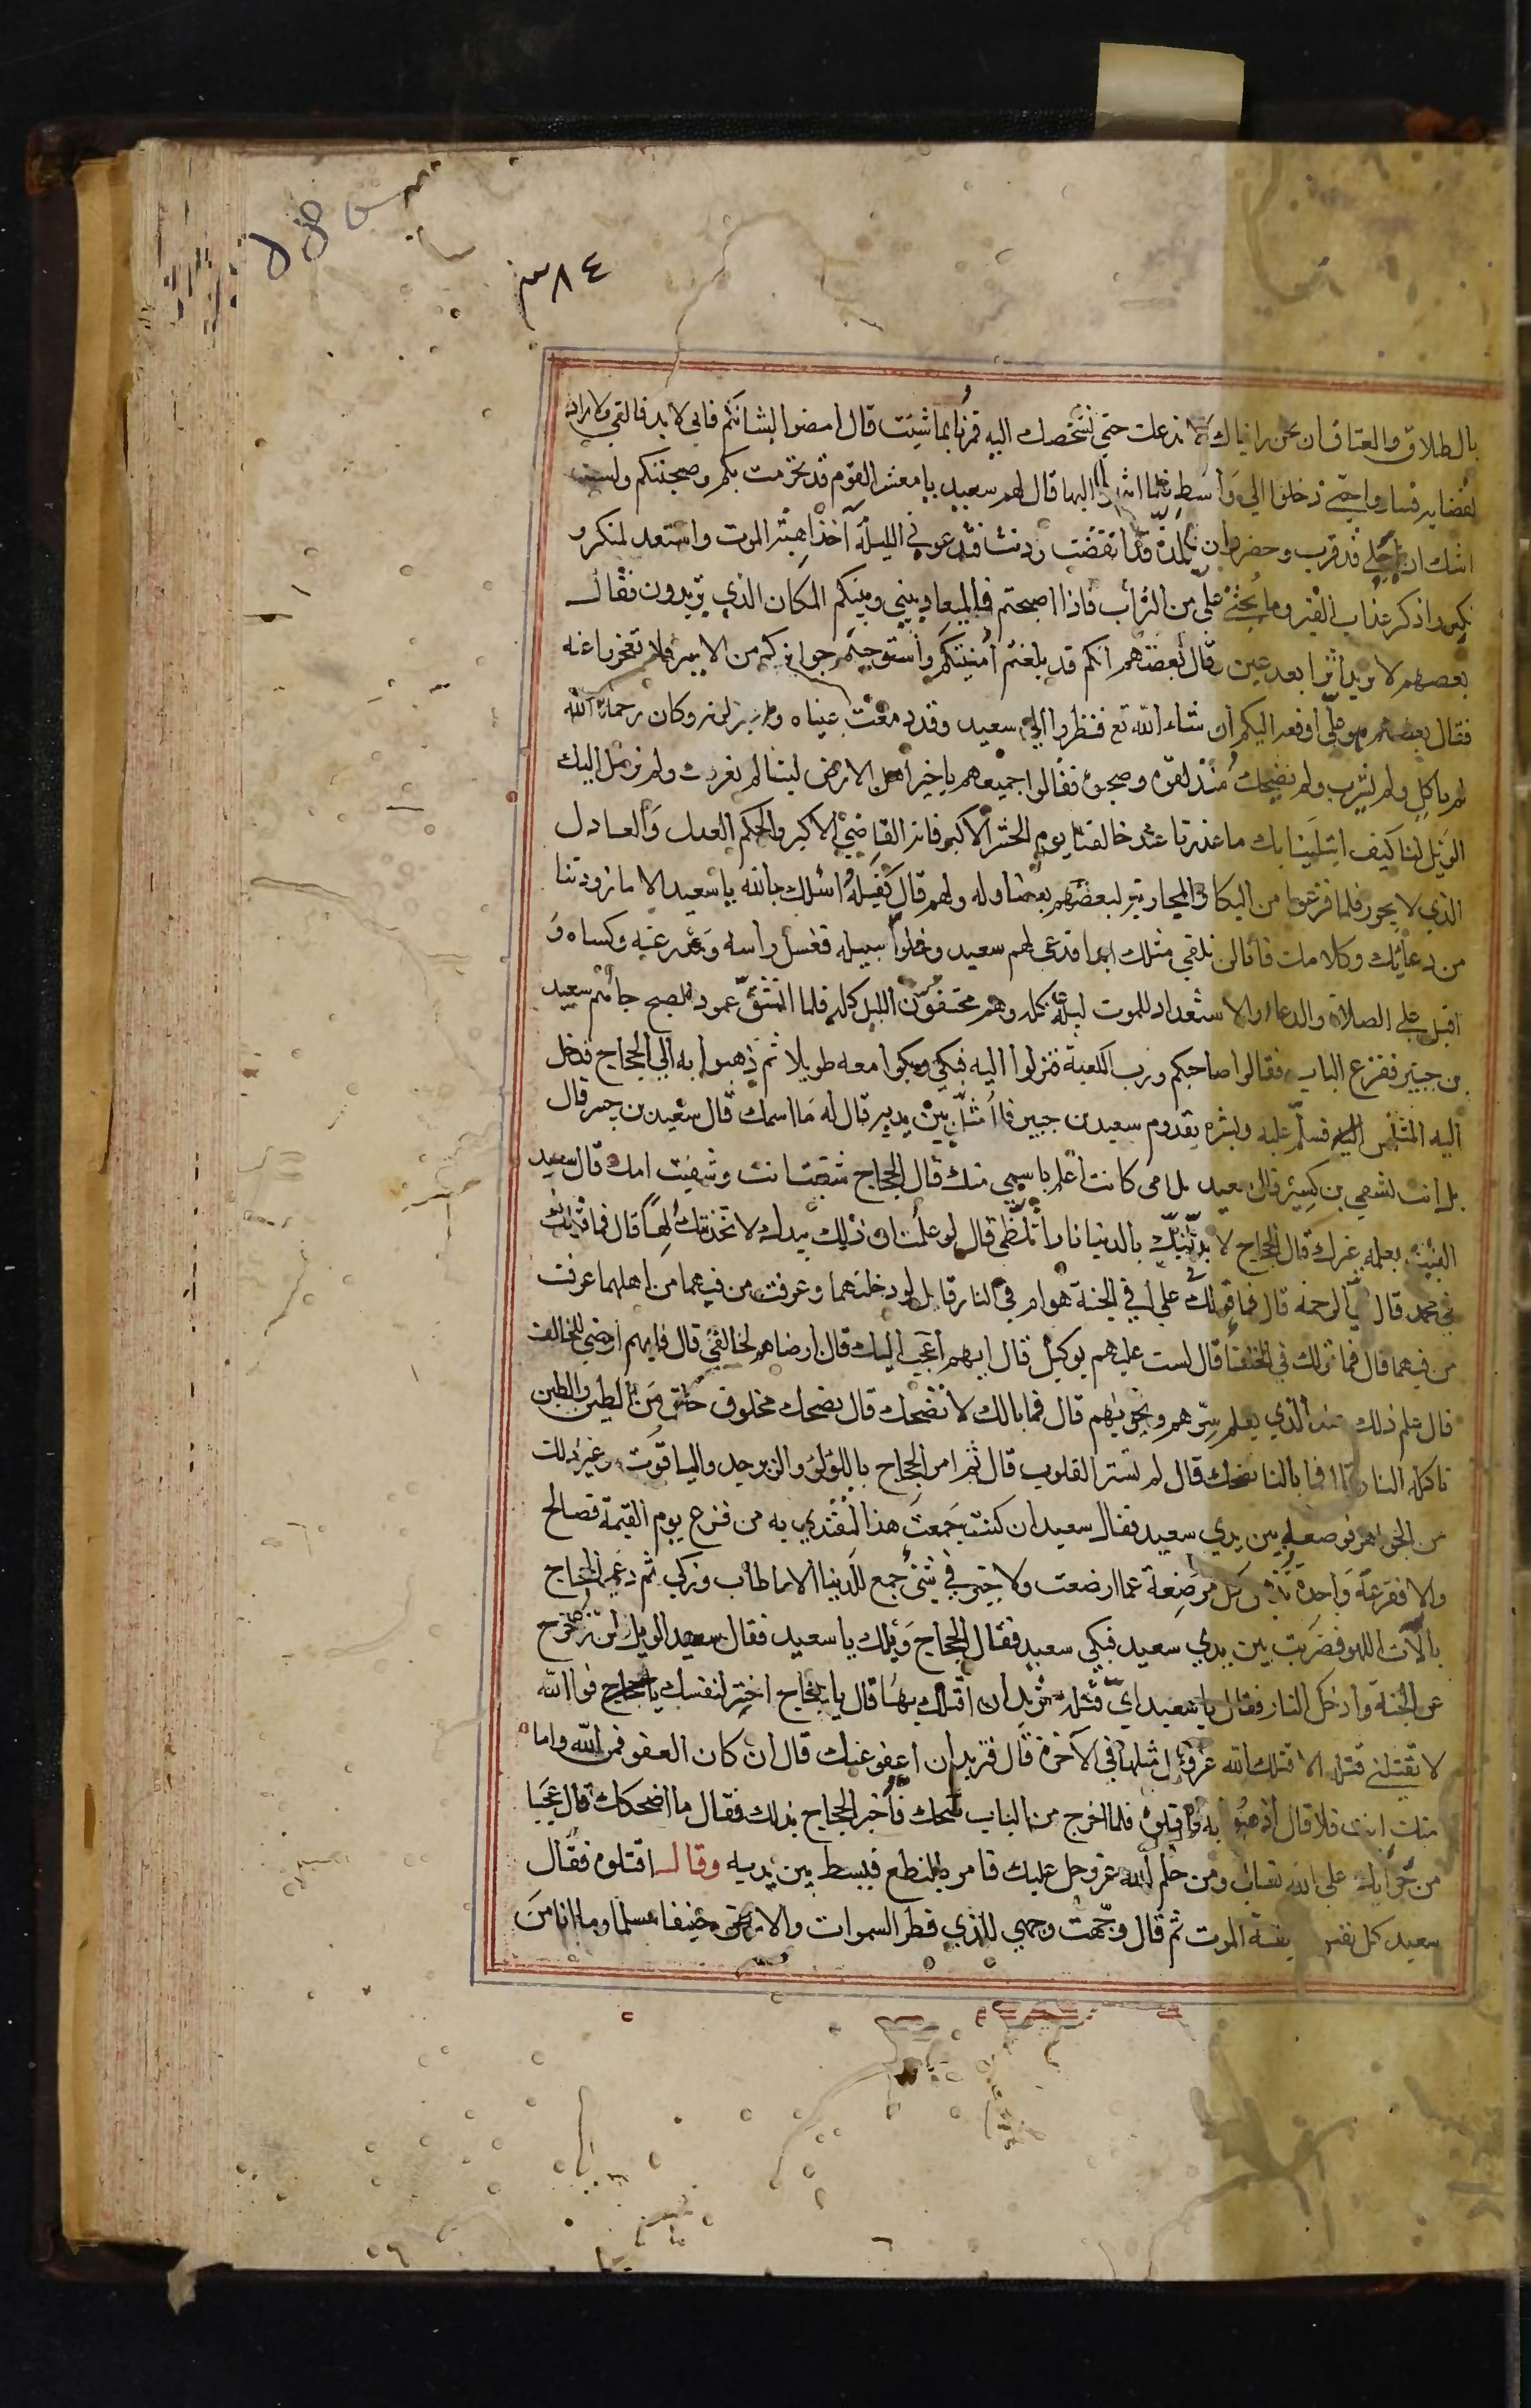 ٣٨٤
بالطلاق والعتاق ان نحن رايناك لا ندعك حتى نشخصك اليه فمرنا بما شئت قال امضوا لشانكم فاني لا بد فالقي ولا راد
لقضايه فساروا حتى دخلوا الي واسط فلما انتهوا اليها قال لهم سعيد يا معشر القوم قد تحرمت بكم وصحبتكم ولست
اشك ان اجلي قد قرب وحضر وان المدة قد انقضت ردنت فدعوني الليلة آخذ اهبة الموت واستعد لمنكر و
نكير واذكر عذاب القبر وما يحثى علي من التراب فاذا اصبحتم فالميعاد بيني وبينكم المكان الذي تريدون فقال
بعضهم لا نريد اثرا بعد عين وقال بعضهم انكم قد بلغتم امنيتكم واستوجبتم جوايزكم من الامير فلا تعجزوا عنه
فقال بعضهم هو علي ادفعه اليكم ان شاء الله تع فنظروا الي سعيد وقد دمعت عيناه وكان رحمة الله
لم ياكل ولم يشرب ولم يضحك منذ لقوه وصحبوه فقالوا جميعهم يا خير اهل الارض ليتنا لم نعرفك ولم نرسل اليك
الويل لنا كيف ابتلينا بك ما عذرنا عند خالقنا يوم الحشر الاكبر فانه القاضي الاكبر والحكم العدل والعادل
الذي لا يجور فلما فرغوا من البكا والمجاوبة لبعضهم بعضا وله ولهم قال كفيله اسئلك بالله يا سعيد الا ما زودتنا
من دعائك وكلامك فانا لن نلقي مثلك ابدا فدعى لهم سعيد وخلوا سبيله فغسل راسه ومدرعته وكساه و
اقبل على الصلاة والدعاء والاستعداد للموت ليله كله وهم مختفون الليل كله فلما انشق عمود الصبح جائهم سعيد
بن جبير فقرع الباب فقالوا صاحبكم ورب الكعبة فنزلوا اليه فبكى وبكوا معه طويلا ثم ذهبوا به الي الحجاج فدخل
اليه المتلمس فسلم عليه وبشره بقدوم سعيد بن جبير فلما مثل بين يديه قال له ما اسمك قال سعيد بن جبير قال
بل انت شقي بن كسير قال سعيد بل امي كانت اعلم باسمي منك قال الحجاج شقيت انت وشقيت امك قال سعيد
الغيب يعلمه غيرك قال الحجاج لابدلنك بالدنيا نارا تلظى قال لو علمت ان ذلك بيدك لاتخذتك الها قال فما قولك
في محمد قال نبي الرحمة قال فما قولك في علي افي الجنة هو ام في النار قال لو دخلتهما وعرفت من فيهما من اهلهما عرفت
من فيهما قال فما قولك في الخلفاء قال لست عليهم بوكيل قال ايهم اعجب اليك قال ارضاهم لخالقي قال فايهم ارضي للخالق
قال علم ذلك عند الذي يعلم سرهم ونجويهم قال فما بالك لا تضحك قال يضحك مخلوق خلق من الطين والطين
تاكله النار قال فما بالنا نضحك قال لم تستو القلوب قال ثم امر الحجاج باللؤلؤ والزبرجد والياقوت وغير ذلك
من الجواهر فوضعه بين يدي سعيد فقال سعيد ان كنت جمعت هذا لتفتدي به من فزع يوم القيمة فصالح
والا ففزعة واحدة تذهل كل مرضعة عما ارضعت ولا خير في شئ جمع للدنيا الا ما طاب وزكي ثم دعى الحجاج
بآلات اللهو فضربت بين يدي سعيد فبكى سعيد فقال الحجاج ويلك يا سعيد فقال سعيد الويل لمن زحزح
عن الجنة وادخل النار فقال يا سعيد اي قتلة تريد ان اقتلك بها قال يا حجاج اختر لنفسك يا حجاج فو الله
لا تقتلني قتلة الا قتلك الله عز وجل مثلها في الآخرة قال فتريد ان اعفو عنك قال ان كان العفو فمن الله واما
منك انت فلا قال اذهبوا به فاقتلوه فلما اخرج من الباب ضحك فأخبر الحجاج بذلك فقال ما اضحكك قال عجبا
من جرأتك على الله تعالى ومن حلم الله عز وجل عليك فامر بالنطع فبسط بين يديه وقال اقتلوه فقال
سعيد كل نفس ذايقة الموت ثم قال وجهت وجهي للذي فطر السموات والارض حنيفا مسلما وما انا من